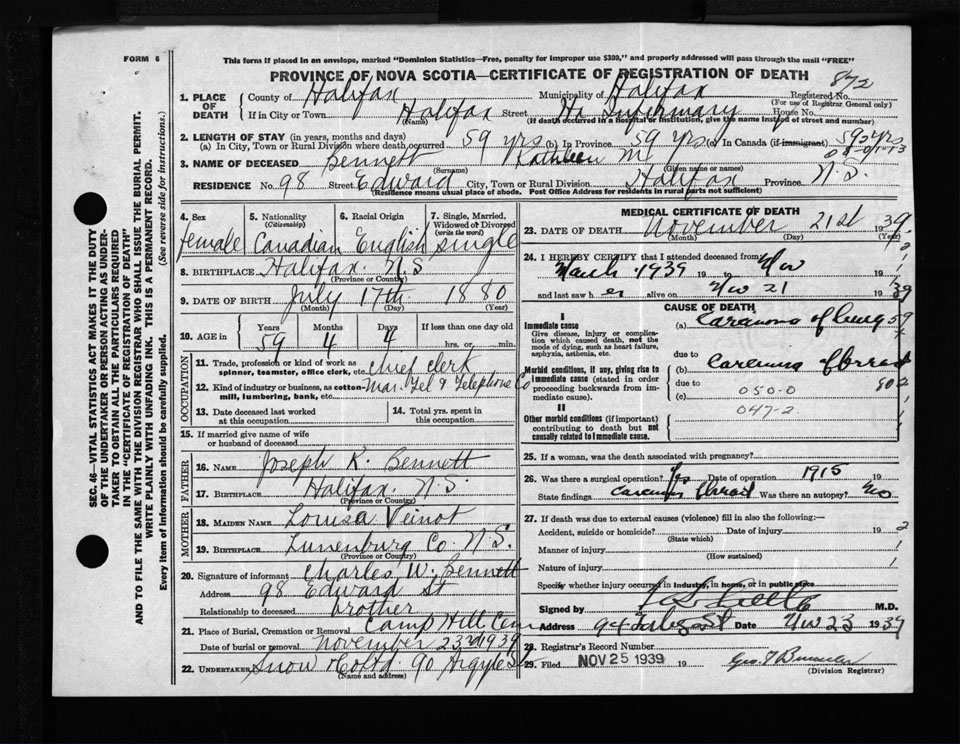 FORM 6
This form if placed in an envelope, marked "Dominion Statistics—Free, penalty for improper use $300," and properly addressed will pass through the mail "FREE"
PROVINCE OF NOVA SCOTIA—CERTIFICATE OF REGISTRATION OF DEATH
872
1. PLACE OF DEATH County of Halifax Municipality of Halifax Registered No.
(For use of Registrar General only)
If in City or Town Halifax Street Hx Infirmary House No.
(Name) (If death occurred in a hospital or institution, give the name instead of street and number)
2. LENGTH OF STAY (in years, months and days)
(a) In City, Town or Rural Division where death occurred 59 yrs (b) In Province 59 yrs (c) In Canada (if immigrant) 59 yrs
3. NAME OF DECEASED Bennett Kathleen M.
(Surname) (Given name or names)
RESIDENCE No. 98 Street Edward City, Town or Rural Division Halifax Province N.S.
(Residence means usual place of abode. Post Office Address for residents in rural parts not sufficient)
SEC. 46—VITAL STATISTICS ACT MAKES IT THE DUTY
OF THE UNDERTAKER OR PERSON ACTING AS UNDER-
TAKER TO OBTAIN ALL THE PARTICULARS REQUIRED
IN THE "CERTIFICATE OF REGISTRATION OF DEATH"
AND TO FILE THE SAME WITH THE DIVISION REGISTRAR WHO SHALL ISSUE THE BURIAL PERMIT.
WRITE PLAINLY WITH UNFADING INK. THIS IS A PERMANENT RECORD.
Every item of information should be carefully supplied. (See reverse side for instructions.)
4. Sex 5. Nationality (Citizenship) 6. Racial Origin 7. Single, Married, Widowed or Divorced (write the word)
female Canadian English single
8. BIRTHPLACE Halifax N.S
(Province or Country)
9. DATE OF BIRTH July 17th 1880
(Month) (Day) (Year)
10. AGE in Years Months Days If less than one day old
59 4 4 hrs. or min.
OCCUPATION
11. Trade, profession or kind of work as spinner, teamster, office clerk, etc. chief clerk
12. Kind of industry or business, as cotton-mill, lumbering, bank, etc. Mar. Tel & Telephone Co
13. Date deceased last worked at this occupation 14. Total yrs. spent in this occupation
15. If married give name of wife or husband of deceased
FATHER
16. NAME Joseph K. Bennett
17. BIRTHPLACE Halifax N.S.
(Province or Country)
MOTHER
18. MAIDEN NAME Louisa Veinot
19. BIRTHPLACE Lunenburg Co. N.S.
(Province or Country)
20. Signature of informant Charles W. Bennett
Address 98 Edward St
Relationship to deceased brother
21. Place of Burial, Cremation or Removal Camp Hill Cem
Date of burial or removal November 23rd 1939
22. UNDERTAKER Snow & Co Ltd. 90 Argyle St
(Name and address)
MEDICAL CERTIFICATE OF DEATH
23. DATE OF DEATH November 21st 1939
(Month) (Day) (Year)
24. I HEREBY CERTIFY that I attended deceased from
March 1939 19 to Nov 19
and last saw h er alive on Nov 21 1939
CAUSE OF DEATH
I
Immediate cause
Give disease, injury or complication which caused death, not the mode of dying, such as heart failure, asphyxia, asthenia, etc.
(a) Carcinoma of lung
due to
Morbid conditions, if any, giving rise to immediate cause (stated in order proceeding backwards from immediate cause).
(b) Carcinoma of breast
due to
(c) 050-0
II
047-2
Other morbid conditions (if important) contributing to death but not causally related to immediate cause.
25. If a woman, was the death associated with pregnancy?
26. Was there a surgical operation? Yes Date of operation 1915 19
State findings Carcinoma breast Was there an autopsy? No
27. If death was due to external causes (violence) fill in also the following:—
Accident, suicide or homicide? Date of injury 19
(State which)
Manner of injury
(How sustained)
Nature of injury
Specify whether injury occurred in industry, in home, or in public place
Signed by M.D.
Address Date Nov 23 1939
28. Registrar's Record Number
29. Filed NOV 25 1939 19
(Division Registrar)